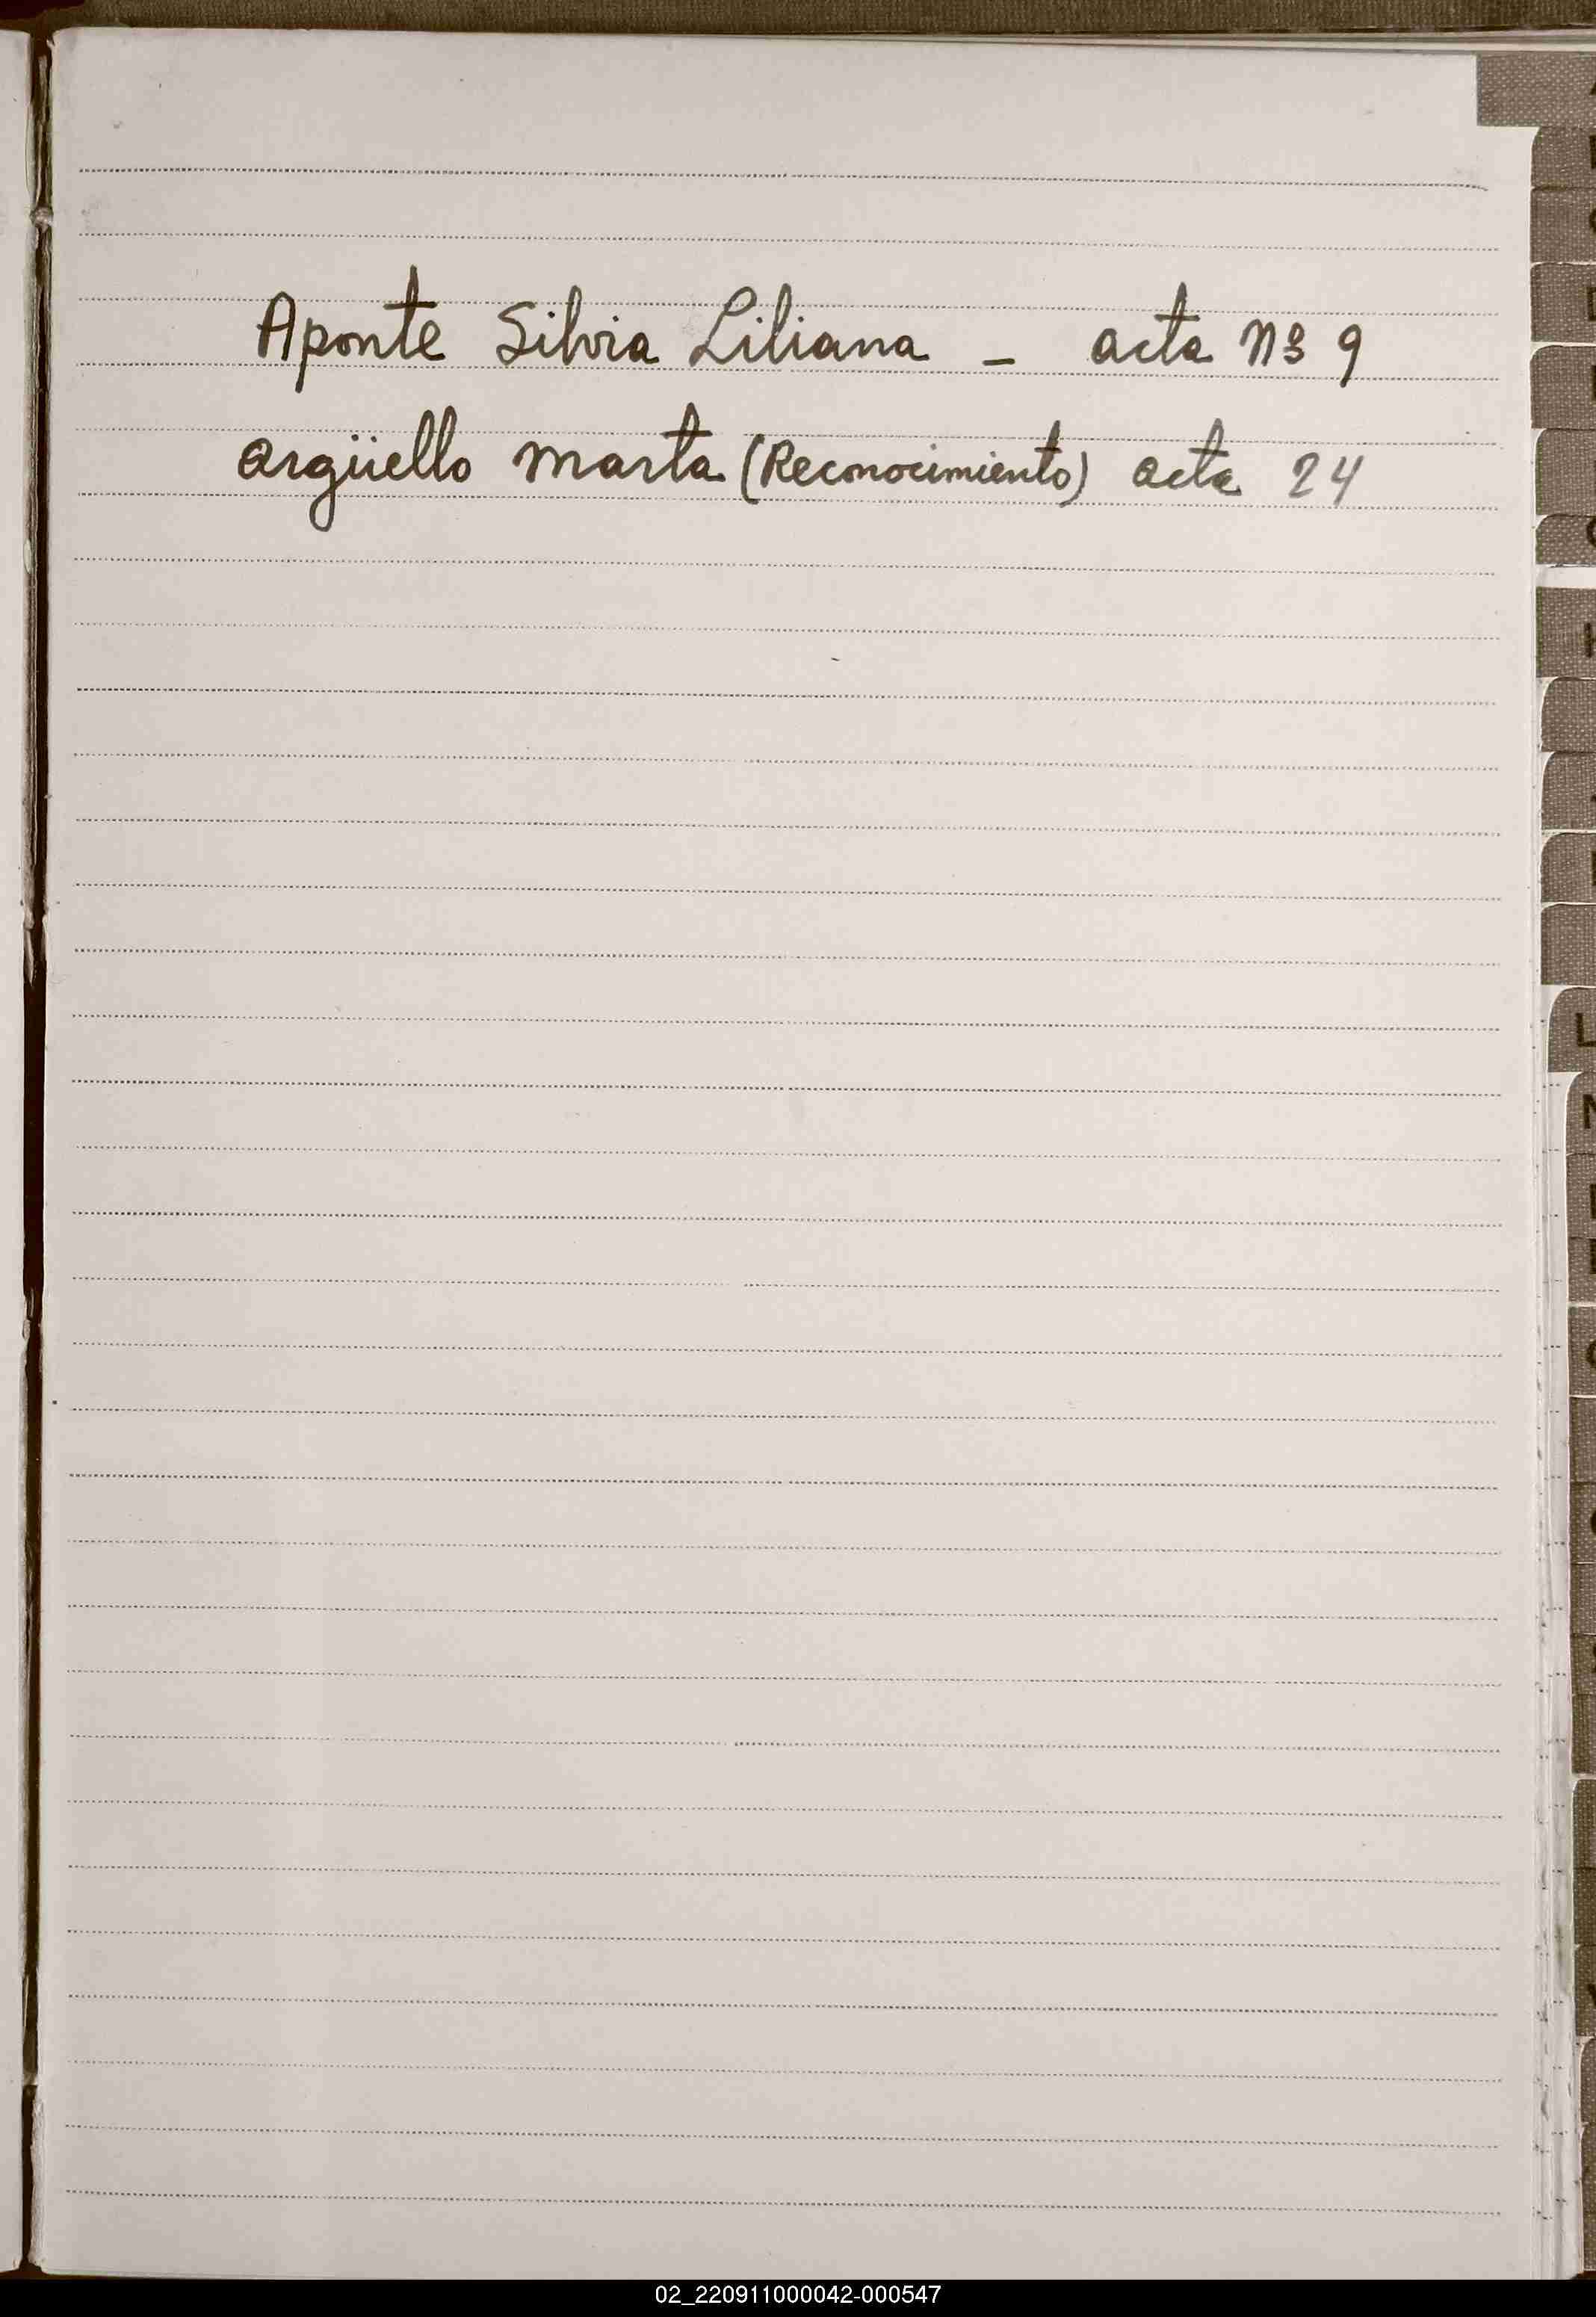 Aponte Silvia Liliana - acta Nº 9
Argüello Marta (Reconocimiento) acta 24
L
02_220911000042-000547